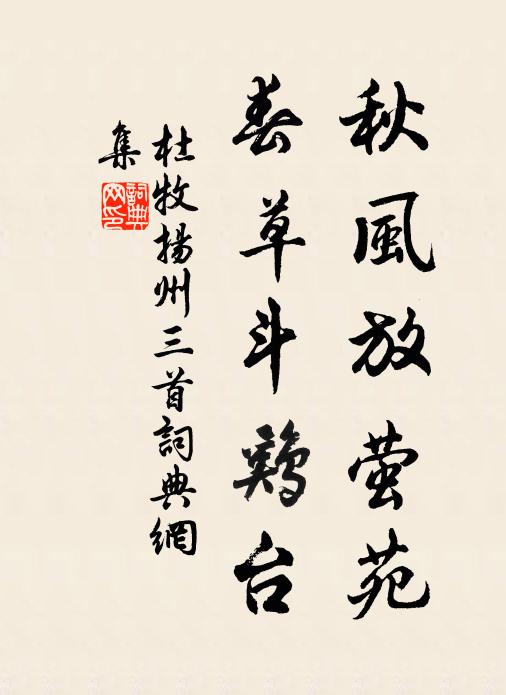 秋風放萤苑
春草斗鷄台
杜牧揚州三首詞典網
集
詞典网印